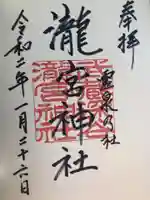 奉拝
霊泉乃社
瀧宮神社
令和二年一月二十六日